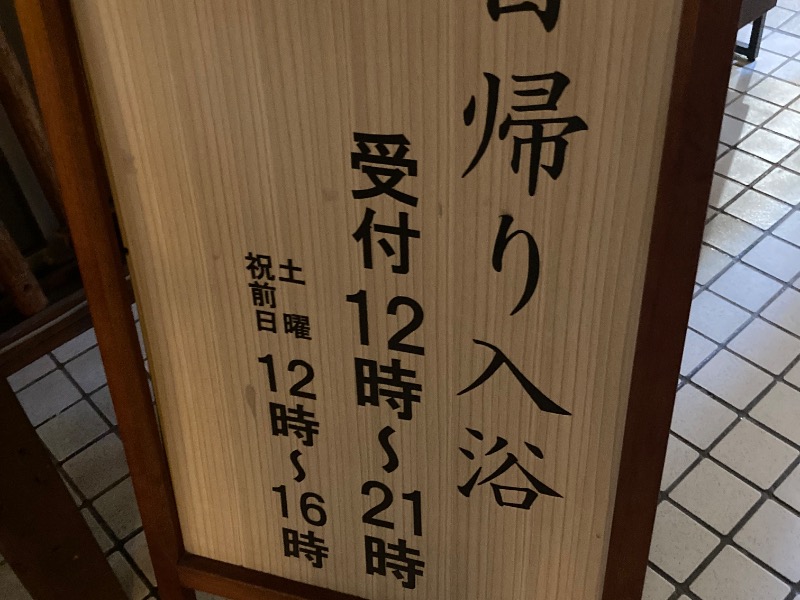 日帰り入浴
受付12時～21時
土曜
祝前日
12時～16時